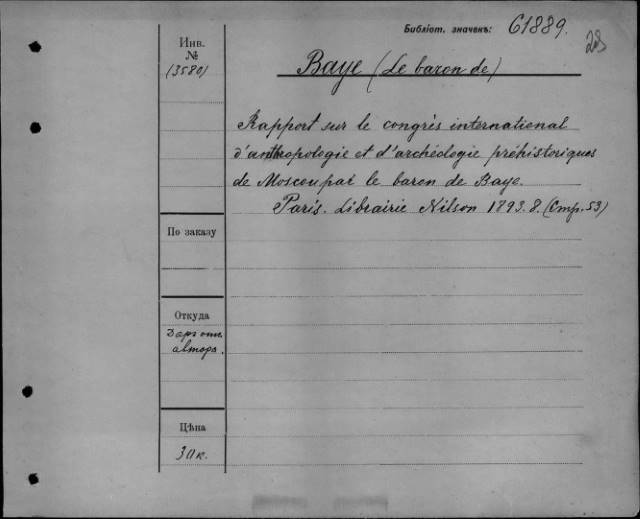 Библіот. значекъ: 61889.
Инв.
№
(3580)
Baye (Le baron de)
Rapport sur le congrès international
d'anthropologie et d'archéologie préhistoriques
de Moscou par le baron de Baye.
Paris. Librairie Nilson 1893. 8. (Стр. 53)
По заказу
Откуда
Даръ отъ
автора.
Цѣна